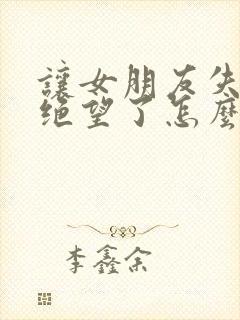 讓女朋友失
绝望了怎麼
李鑫余